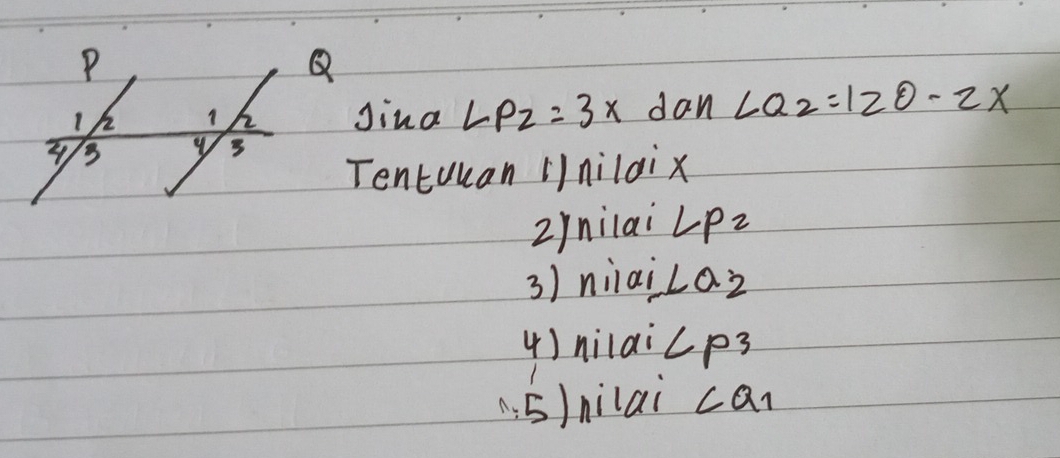 P Q
1 2 1 2
4 3 4 3
Jika ∠P2 = 3x dan ∠Q2 = 120 - 2x
Tentukan 1) nilai x
2) nilai ∠P2
3) nilai ∠Q2
4) nilai ∠P3
5) nilai ∠Q1